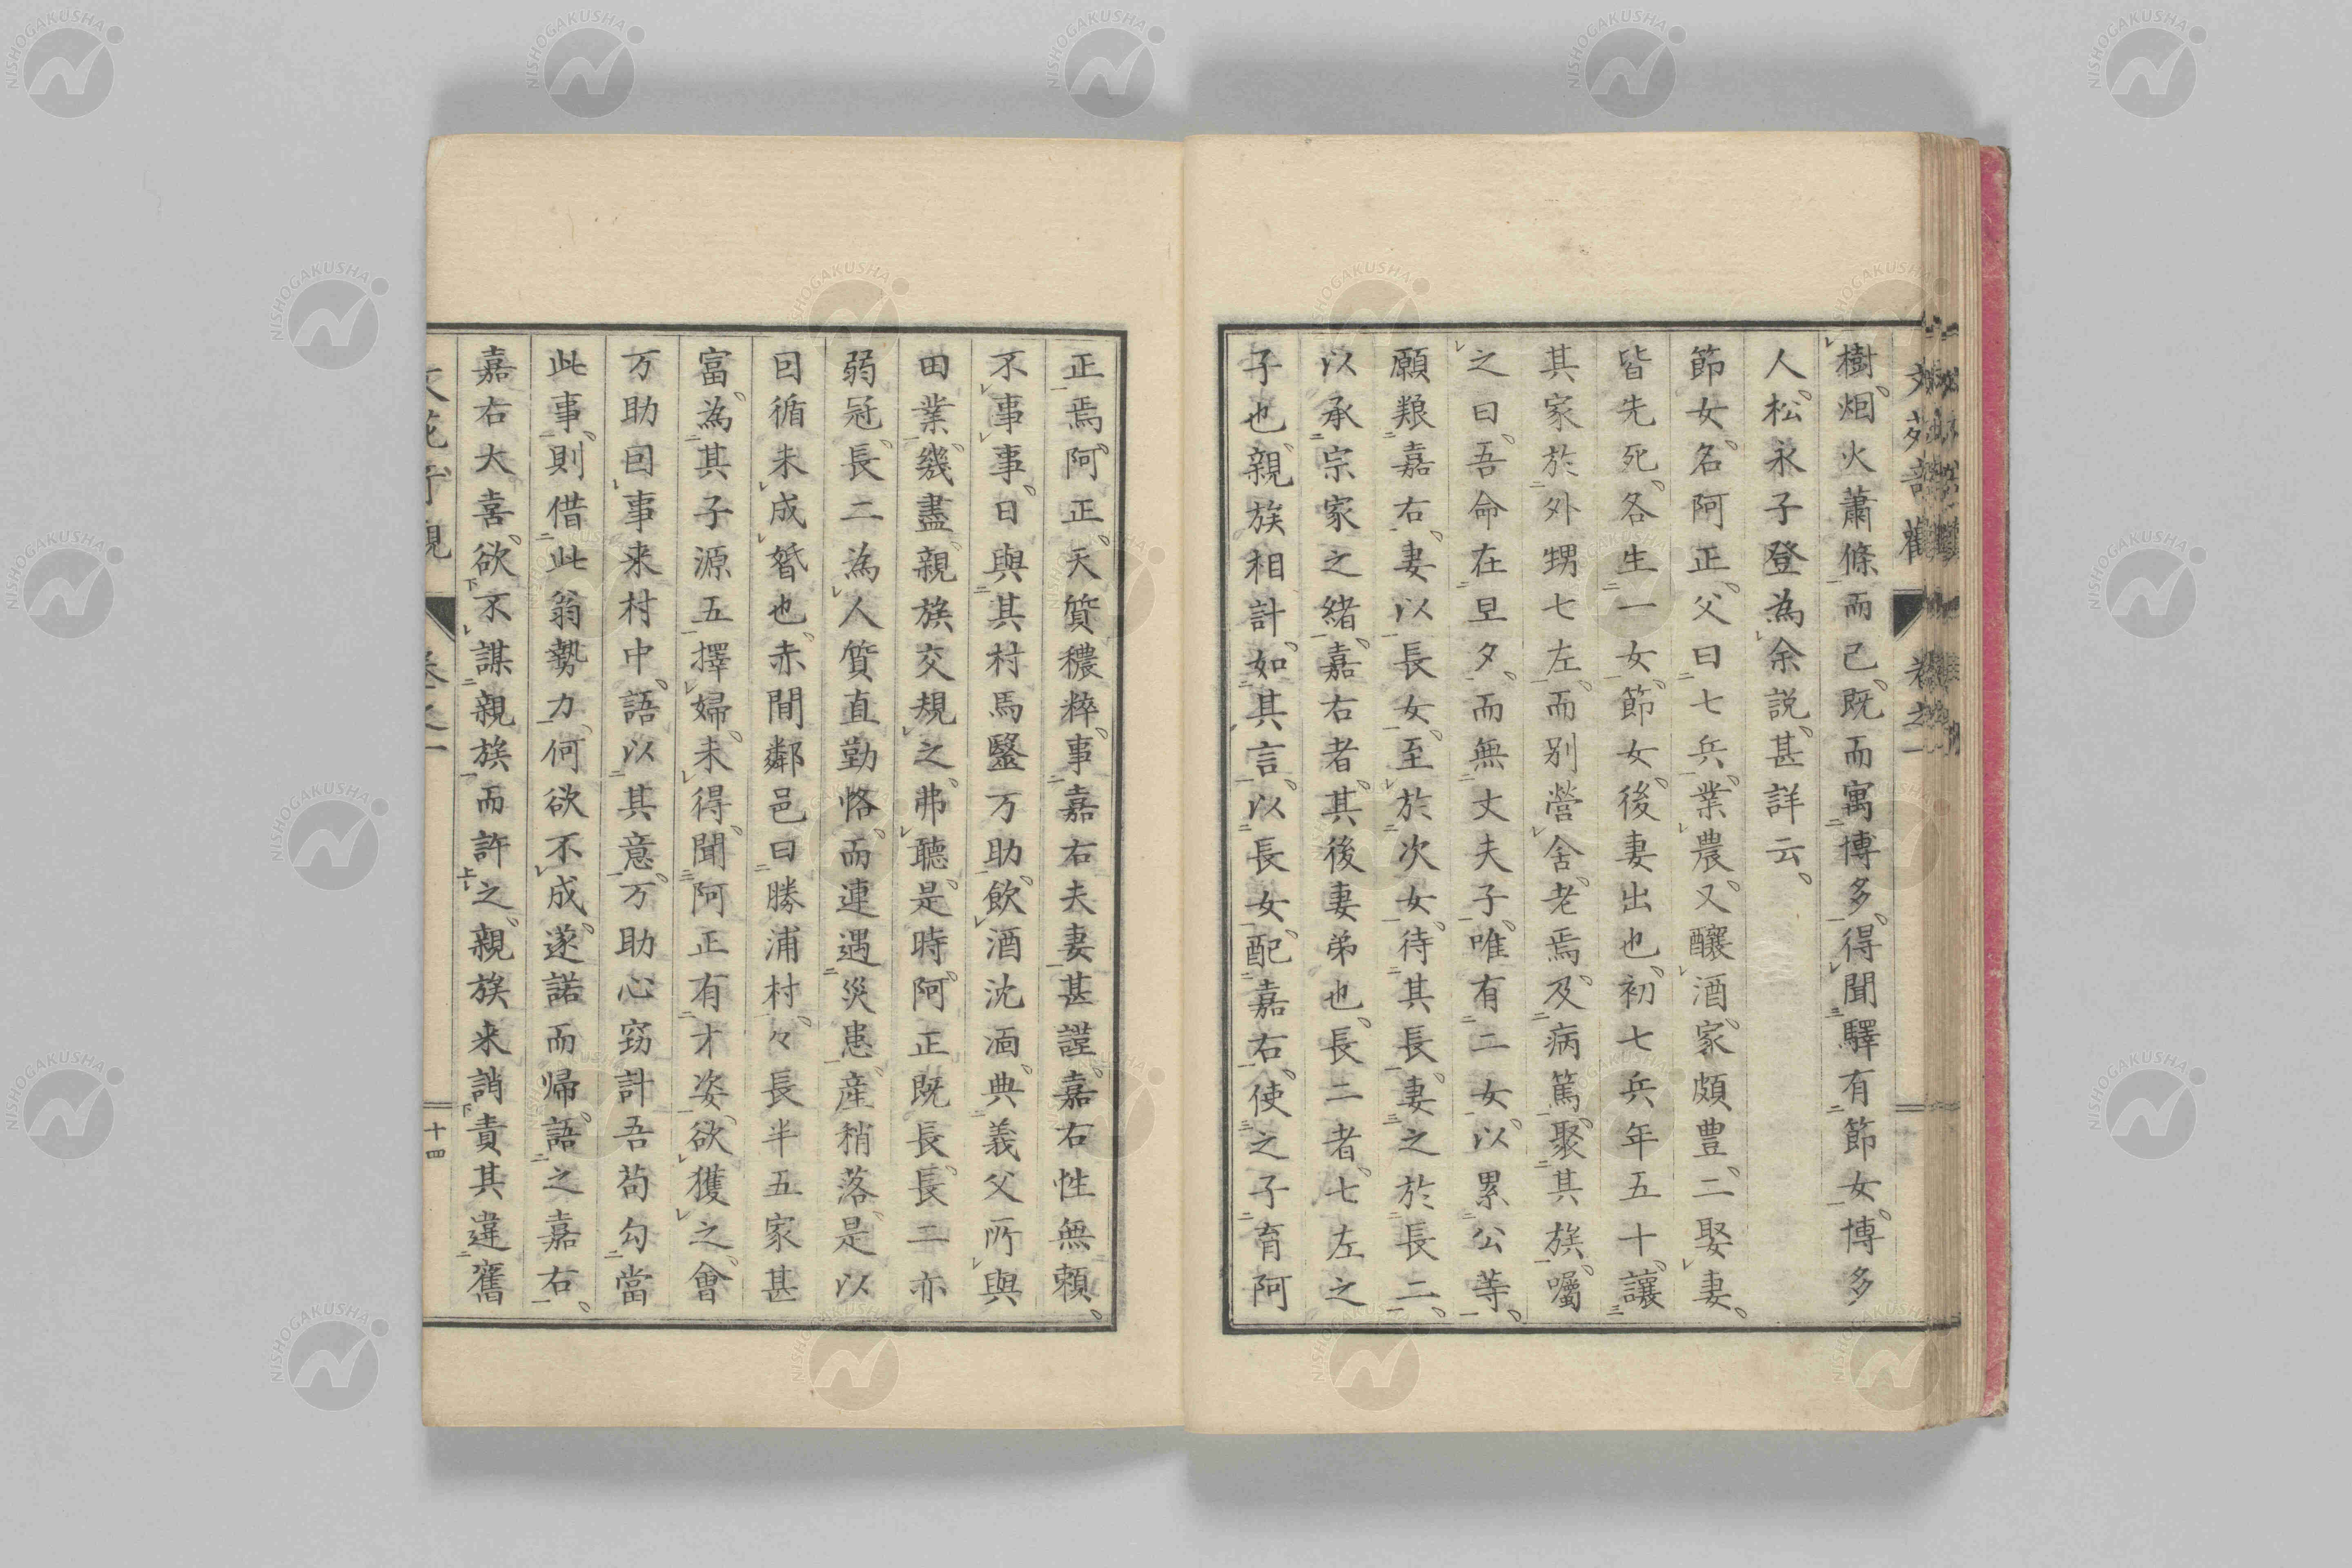 樹烟火蕭條而已既而寓博多得聞驛有節女博多
人松永子登為余説甚詳云
節女名阿正父曰七兵業農又釀酒家頗豊二娶妻
皆先死各生一女節女後妻出也初七兵年五十讓
其家於外甥七左而别營舍老焉及病篤聚其族囑
之曰吾命在旦夕而無丈夫子唯有二女以累公等
願粮嘉右妻以長女至於次女待其長妻之於長二
以承宗家之緒嘉右者其後妻弟也長二者七左之
子也親族相計如其言以長女配嘉右使之子育阿
正焉阿正天質穠粹事嘉右夫妻甚謹嘉右性無頼
不事事日與其村馬醫万助飲酒沈湎典義父所與
田業幾盡親族交規之弗聽是時阿正既長長二亦
弱冠長二為人質直勤恪而連遇災患産稍落是以
因循未成婚也赤間鄰邑曰勝浦村々長半五家甚
富為其子源五擇婦未得聞阿正有才姿欲獲之會
万助因事来村中語以其意万助心窃計吾苟勾當
此事則借此翁勢力何欲不成遂諾而帰語之嘉右
嘉右大喜欲不謀親族而許之親族来誚責其違舊
卷之一
十四
NISHOGAKUSHA